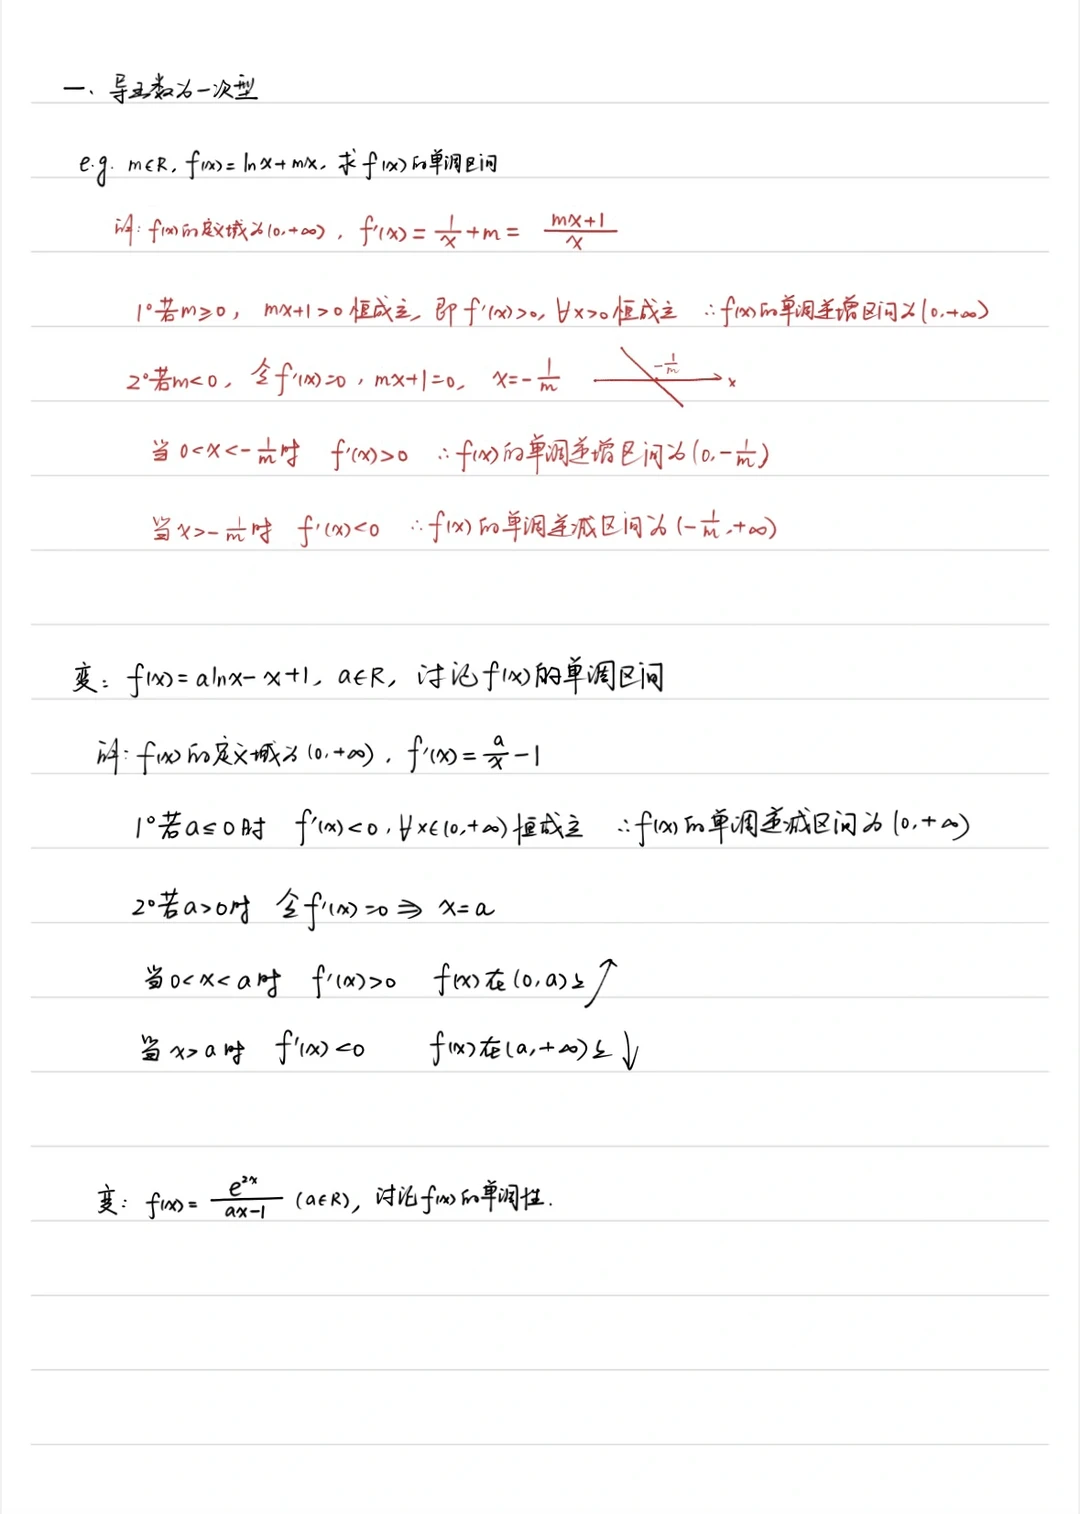 一、导函数为一次型
e.g. m∈R, f(x)=lnx+mx, 求f(x)的单调区间
解: f(x)的定义域为(0,+∞), f'(x)=1/x+m=(mx+1)/x
1°若m≥0, mx+1>0恒成立, 即f'(x)>0, ∀x>0恒成立 ∴f(x)的单调递增区间为(0,+∞)
2°若m<0, 令f'(x)=0, mx+1=0, x=-1/m -1/m x
当0<x<-1/m时 f'(x)>0 ∴f(x)的单调递增区间为(0,-1/m)
当x>-1/m时 f'(x)<0 ∴f(x)的单调递减区间为(-1/m,+∞)
变: f(x)=alnx-x+1, a∈R, 讨论f(x)的单调区间
解: f(x)的定义域为(0,+∞), f'(x)=a/x-1
1°若a≤0时 f'(x)<0, ∀x∈(0,+∞)恒成立 ∴f(x)的单调递减区间为(0,+∞)
2°若a>0时 令f'(x)=0⇒x=a
当0<x<a时 f'(x)>0 f(x)在(0,a)上↗
当x>a时 f'(x)<0 f(x)在(a,+∞)上↓
变: f(x)=e^{2x}/(ax-1) (a∈R), 讨论f(x)的单调性.